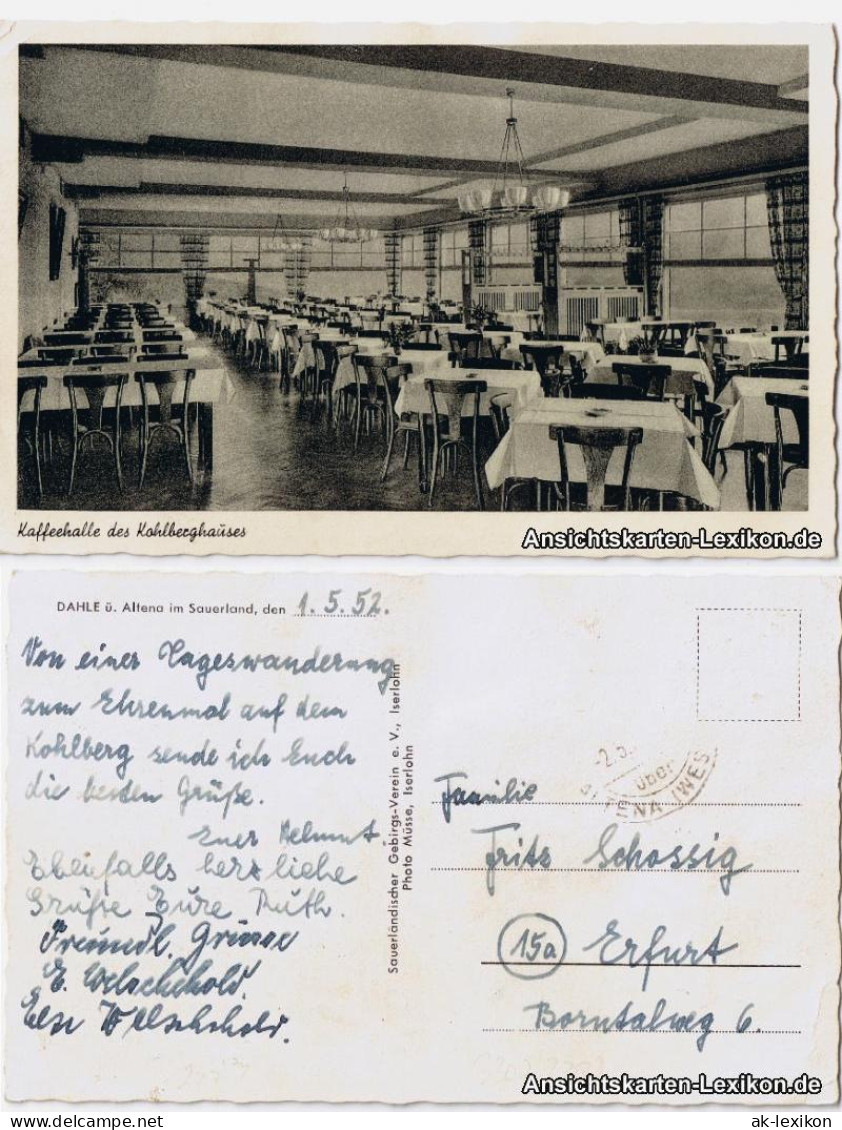 Kaffeehalle des Kohlberghauses
Ansichtskarten-Lexikon.de
DAHLE ü. Altena im Sauerland, den 1.5.52.
Von einer Tageswanderung
zum Ehrenmal auf dem
Kohlberg sende ich Euch
die besten Grüße.
Euer Helmut
Ebenfalls herzliche
Grüße Eure Ruth.
Freundl. Grüsse
E. Welschehold.
Else Welschehold.
Sauerländischer Gebirgs-Verein e. V., Iserlohn
Photo Müsse, Iserlohn
-2.5.
über
ALTENA (WES
Familie
Fritz Schossig
15a Erfurt
Borntalweg 6.
Ansichtskarten-Lexikon.de
ak-lexikon